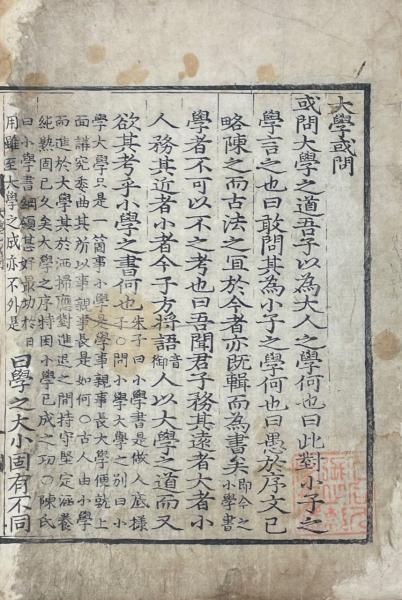 大學或問
或問大學之道吾子以為大人之學何也曰此對小子之
學言之也曰敢問其為小子之學何也曰愚於序文已
略陳之而古法之宜於今者亦既輯而為書矣即今之小學書
學者不可以不之考也曰吾聞君子務其遠者大者小
人務其近者小者今子方將語音御人以大學之道而又
欲其考乎小學之書何也朱子曰小學書是做人底樣子○問小學大學之別曰小
學大學只是一箇事小學是學事親事長大學便就上
面講究委曲其所以事親事長是如何○古人由小學
而進於大學其於洒掃應對進退之間持守堅定涵養
純熟固已久矣大學之序特因小學已成之功○陳氏
曰小學書綱領甚好最切於日
用雖至大學之成亦不外是
曰學之大小固有不同